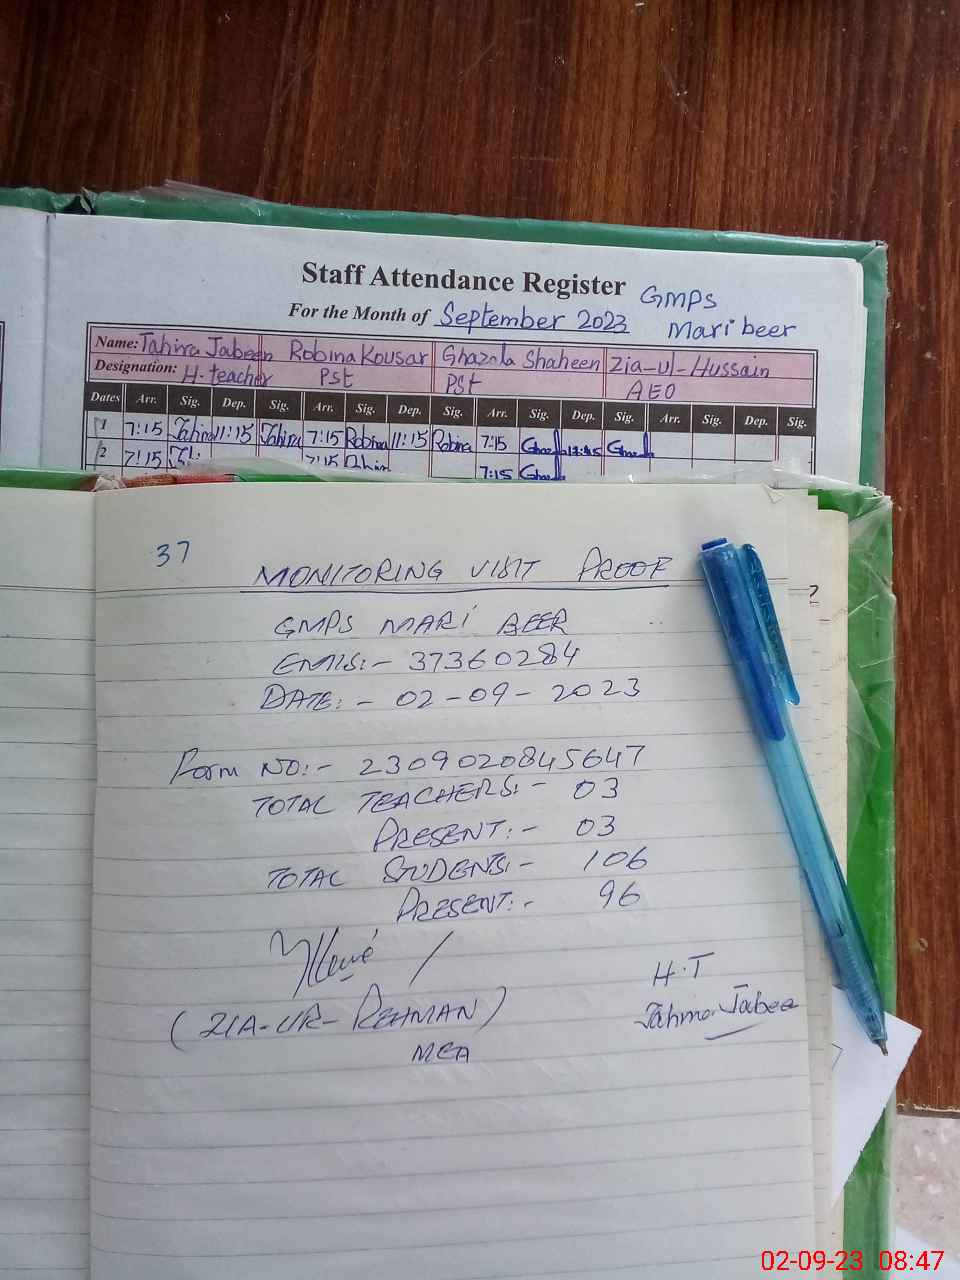 Staff Attendance Register
GMPS
For the Month of September 2023
Mari beer
Name: Tahira Jabeen Robina Kousar Ghazala Shaheen Zia-ul-Hussain
Designation: H.teacher PST PST AEO
Dates Arr. Sig. Dep. Sig. Arr. Sig. Dep. Sig. Arr. Sig. Dep. Sig. Arr. Sig. Dep. Sig.
1 7:15 Tahira 11:15 Tahira 7:15 Robina 11:15 Robina 7:15
2 7:15 7:15 7:15
37
MONITORING VISIT PROOF
GMPS MARI BEER
EMIS:- 37360284
DATE:- 02-09-2023
Form NO:- 2309020845647
TOTAL TEACHERS:- 03
PRESENT:- 03
TOTAL STUDENTS:- 106
PRESENT:- 96
(ZIA-UR-REHMAN)
MEA
H.T
Tahira Jabeen
02-09-23 08:47